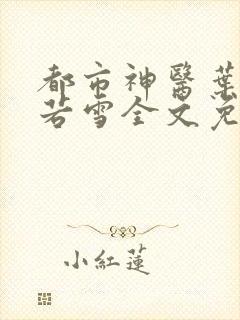 都市神醫葉
若雪全文免
小紅蓮